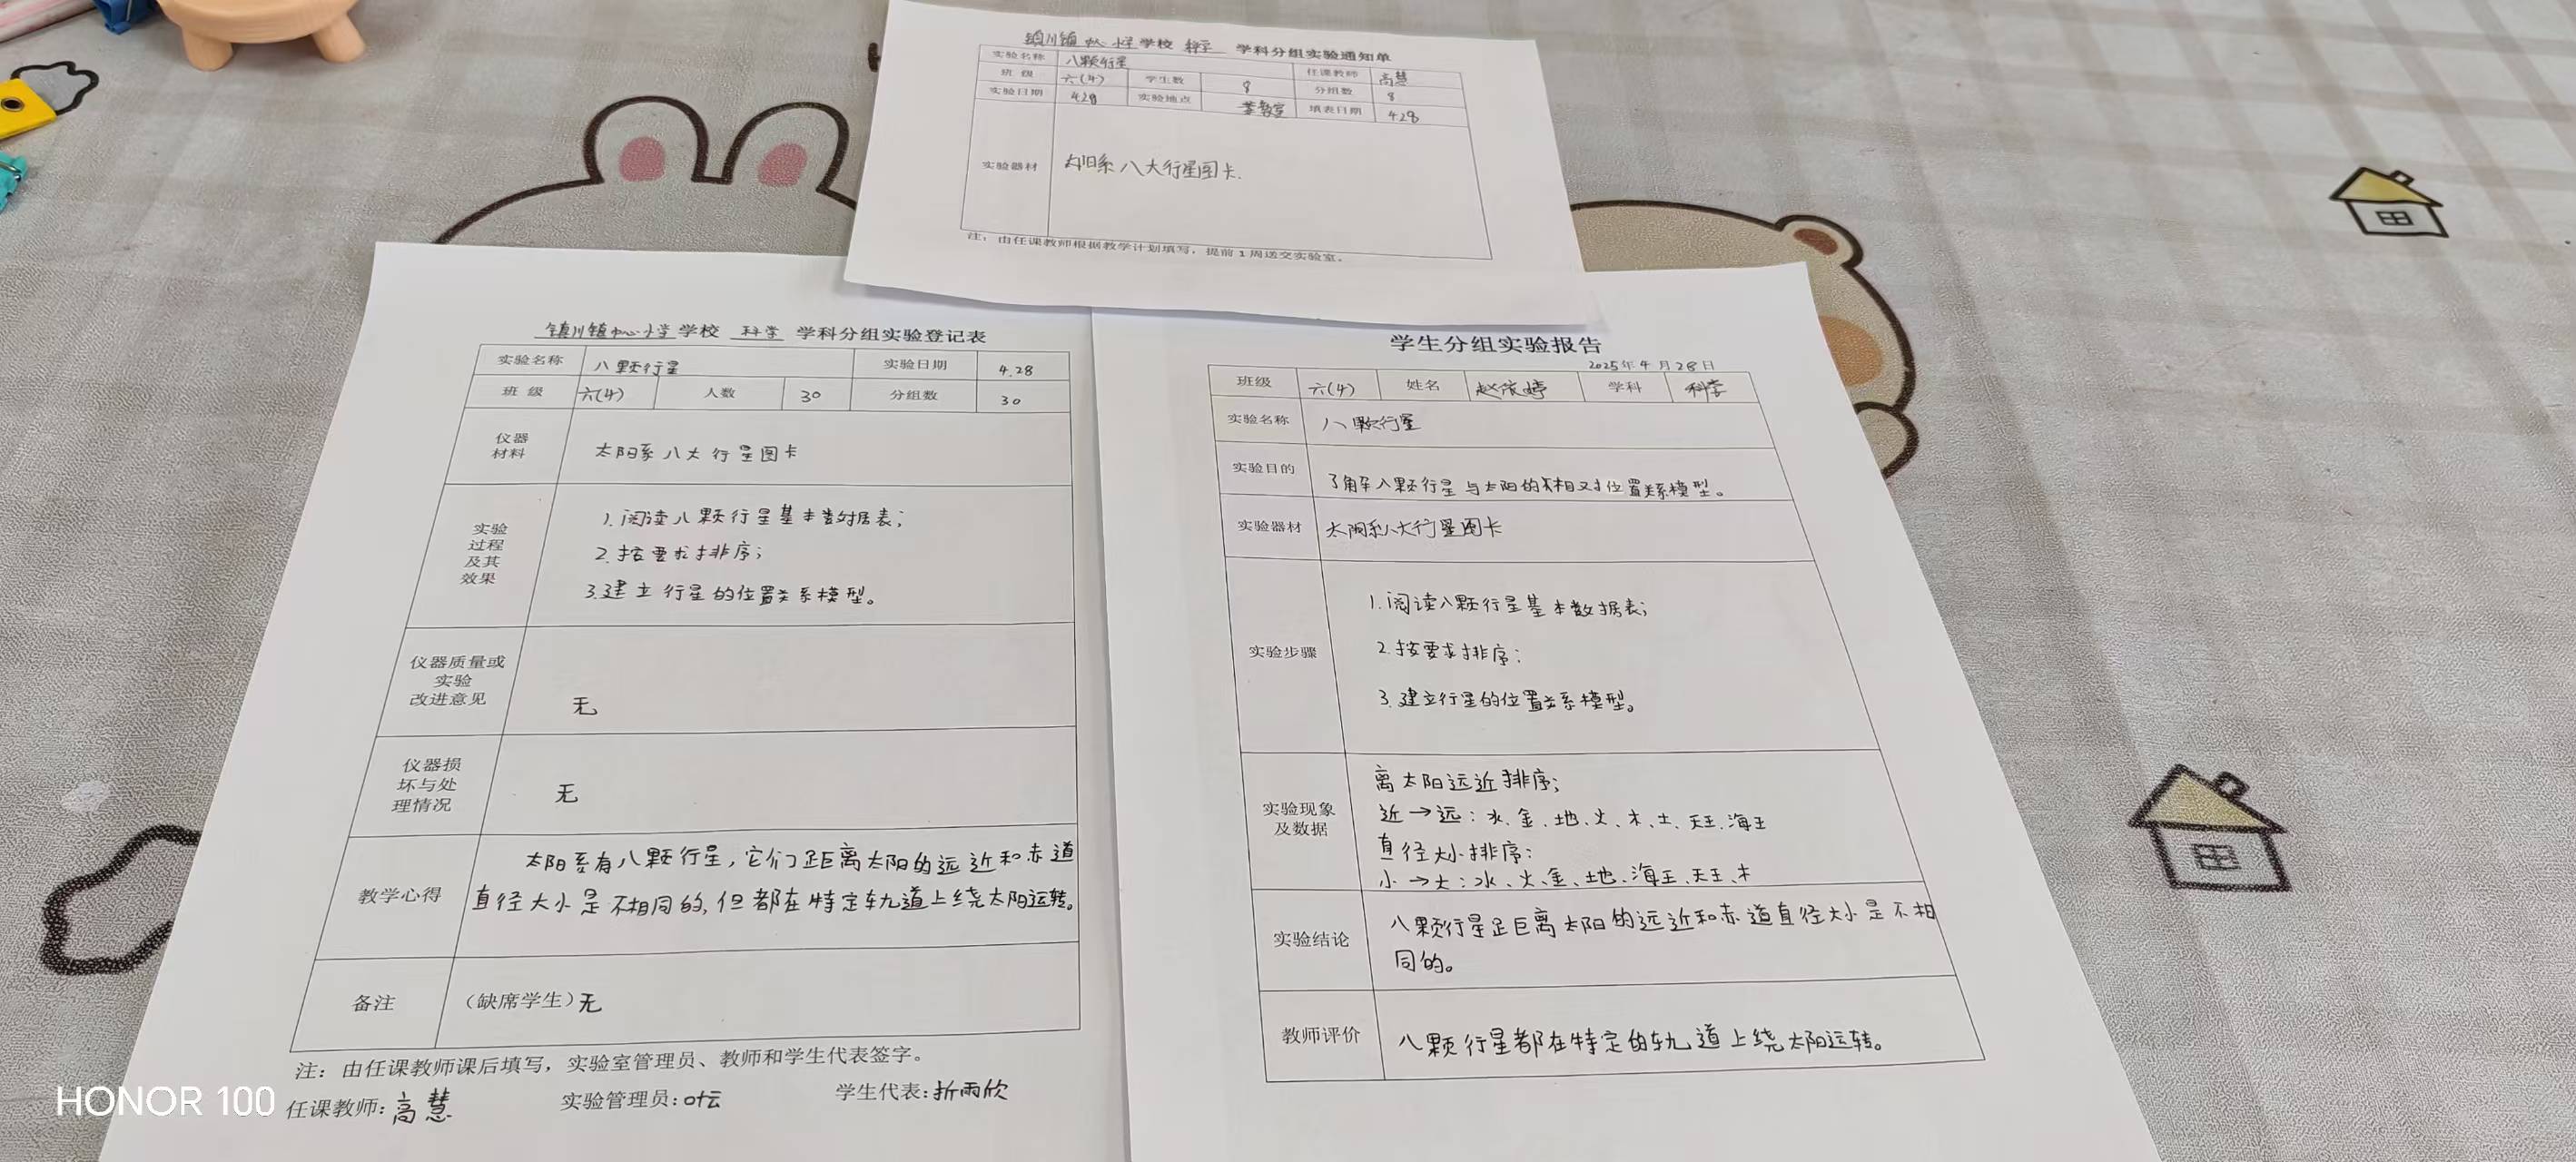 镇川镇中心小学学校 科学 学科分组实验通知单
实验名称 八颗行星 任课教师 高慧
班 级 六(4) 学生数 8 分组数 8
实验日期 4.28 实验地点 教室 填表日期 4.28
实验器材 太阳系八大行星图卡.
注：由任课教师根据教学计划填写，提前1周送交实验室。
镇川镇中心小学学校 科学 学科分组实验登记表
实验名称 八颗行星 实验日期 4.28
班 级 六(4) 人数 30 分组数 30
仪器材料 太阳系八大行星图卡
实验过程及其效果
1.阅读八颗行星基本数据表;
2.按要求排序;
3.建立行星的位置关系模型。
仪器质量或实验改进意见 无
仪器损坏与处理情况 无
教学心得
太阳系有八颗行星,它们距离太阳的远近和赤道
直径大小是不相同的,但都在特定轨道上绕太阳运转。
备注 （缺席学生）无
注：由任课教师课后填写，实验室管理员、教师和学生代表签字。
任课教师:高慧 实验管理员:叶云 学生代表:折雨欣
学生分组实验报告
2025年4月28日
班级 六(4) 姓名 赵依婷 学科 科学
实验名称 八颗行星
实验目的 了解八颗行星与太阳的相对位置关系模型。
实验器材 太阳系八大行星图卡
实验步骤
1.阅读八颗行星基本数据表;
2.按要求排序;
3.建立行星的位置关系模型。
实验现象及数据
离太阳远近排序;
近→远:水、金、地、火、木、土、天王、海王
直径大小排序:
小→大:水、火、金、地、海王、天王、木
实验结论
八颗行星距离太阳的远近和赤道直径大小是不相
同的。
教师评价 八颗行星都在特定的轨道上绕太阳运转。
HONOR 100